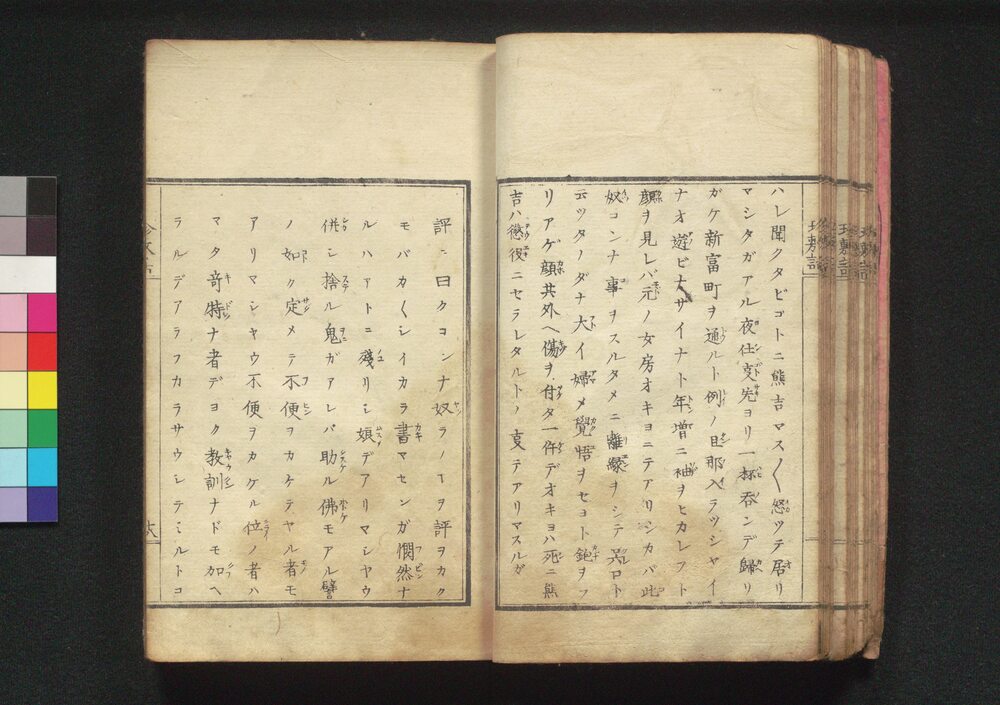 ハレ聞クタビゴトニ熊吉マス〳〵怒ツテ居リ
マシタガアル夜仕支先ヨリ一杯呑ンデ歸リ
ガケ新富町ヲ通ルト例ノ旦那入ラツシヤイ
ナオ遊ビナサイナト年増ニ袖ヲヒカレフト
顔ヲ見レバ元ノ女房オキヨニテアリシカバ此
奴コンナ事ヲスルタメニ離縁ヲシテ呉ロト
云ツタノダナ大イ婦メ覺悟ヲセヨト鉋ヲフ
リアゲ顔其外ヘ傷ヲ付タ一件デオキヨハ死ニ熊
吉ハ懲役ニセラレタルトノ支テアリマスルガ
評ニ曰クコンナ奴ラノヿヲ評ヲカク
モバカ〳〵シイカラ書マセンガ憫然ナ
ルハアトニ殘リシ娘デアリマシヤウ
併シ捨ル鬼ガアレバ助ル佛モアル譬
ノ如ク定メテ不便ヲカケテヤル者モ
アリマシヤウ不便ヲカケル位ノ者ハ
マタ竒特ナ者デヨク教訓ナドモ加ヘ
ラルデアラフカラサウシテミルトコ